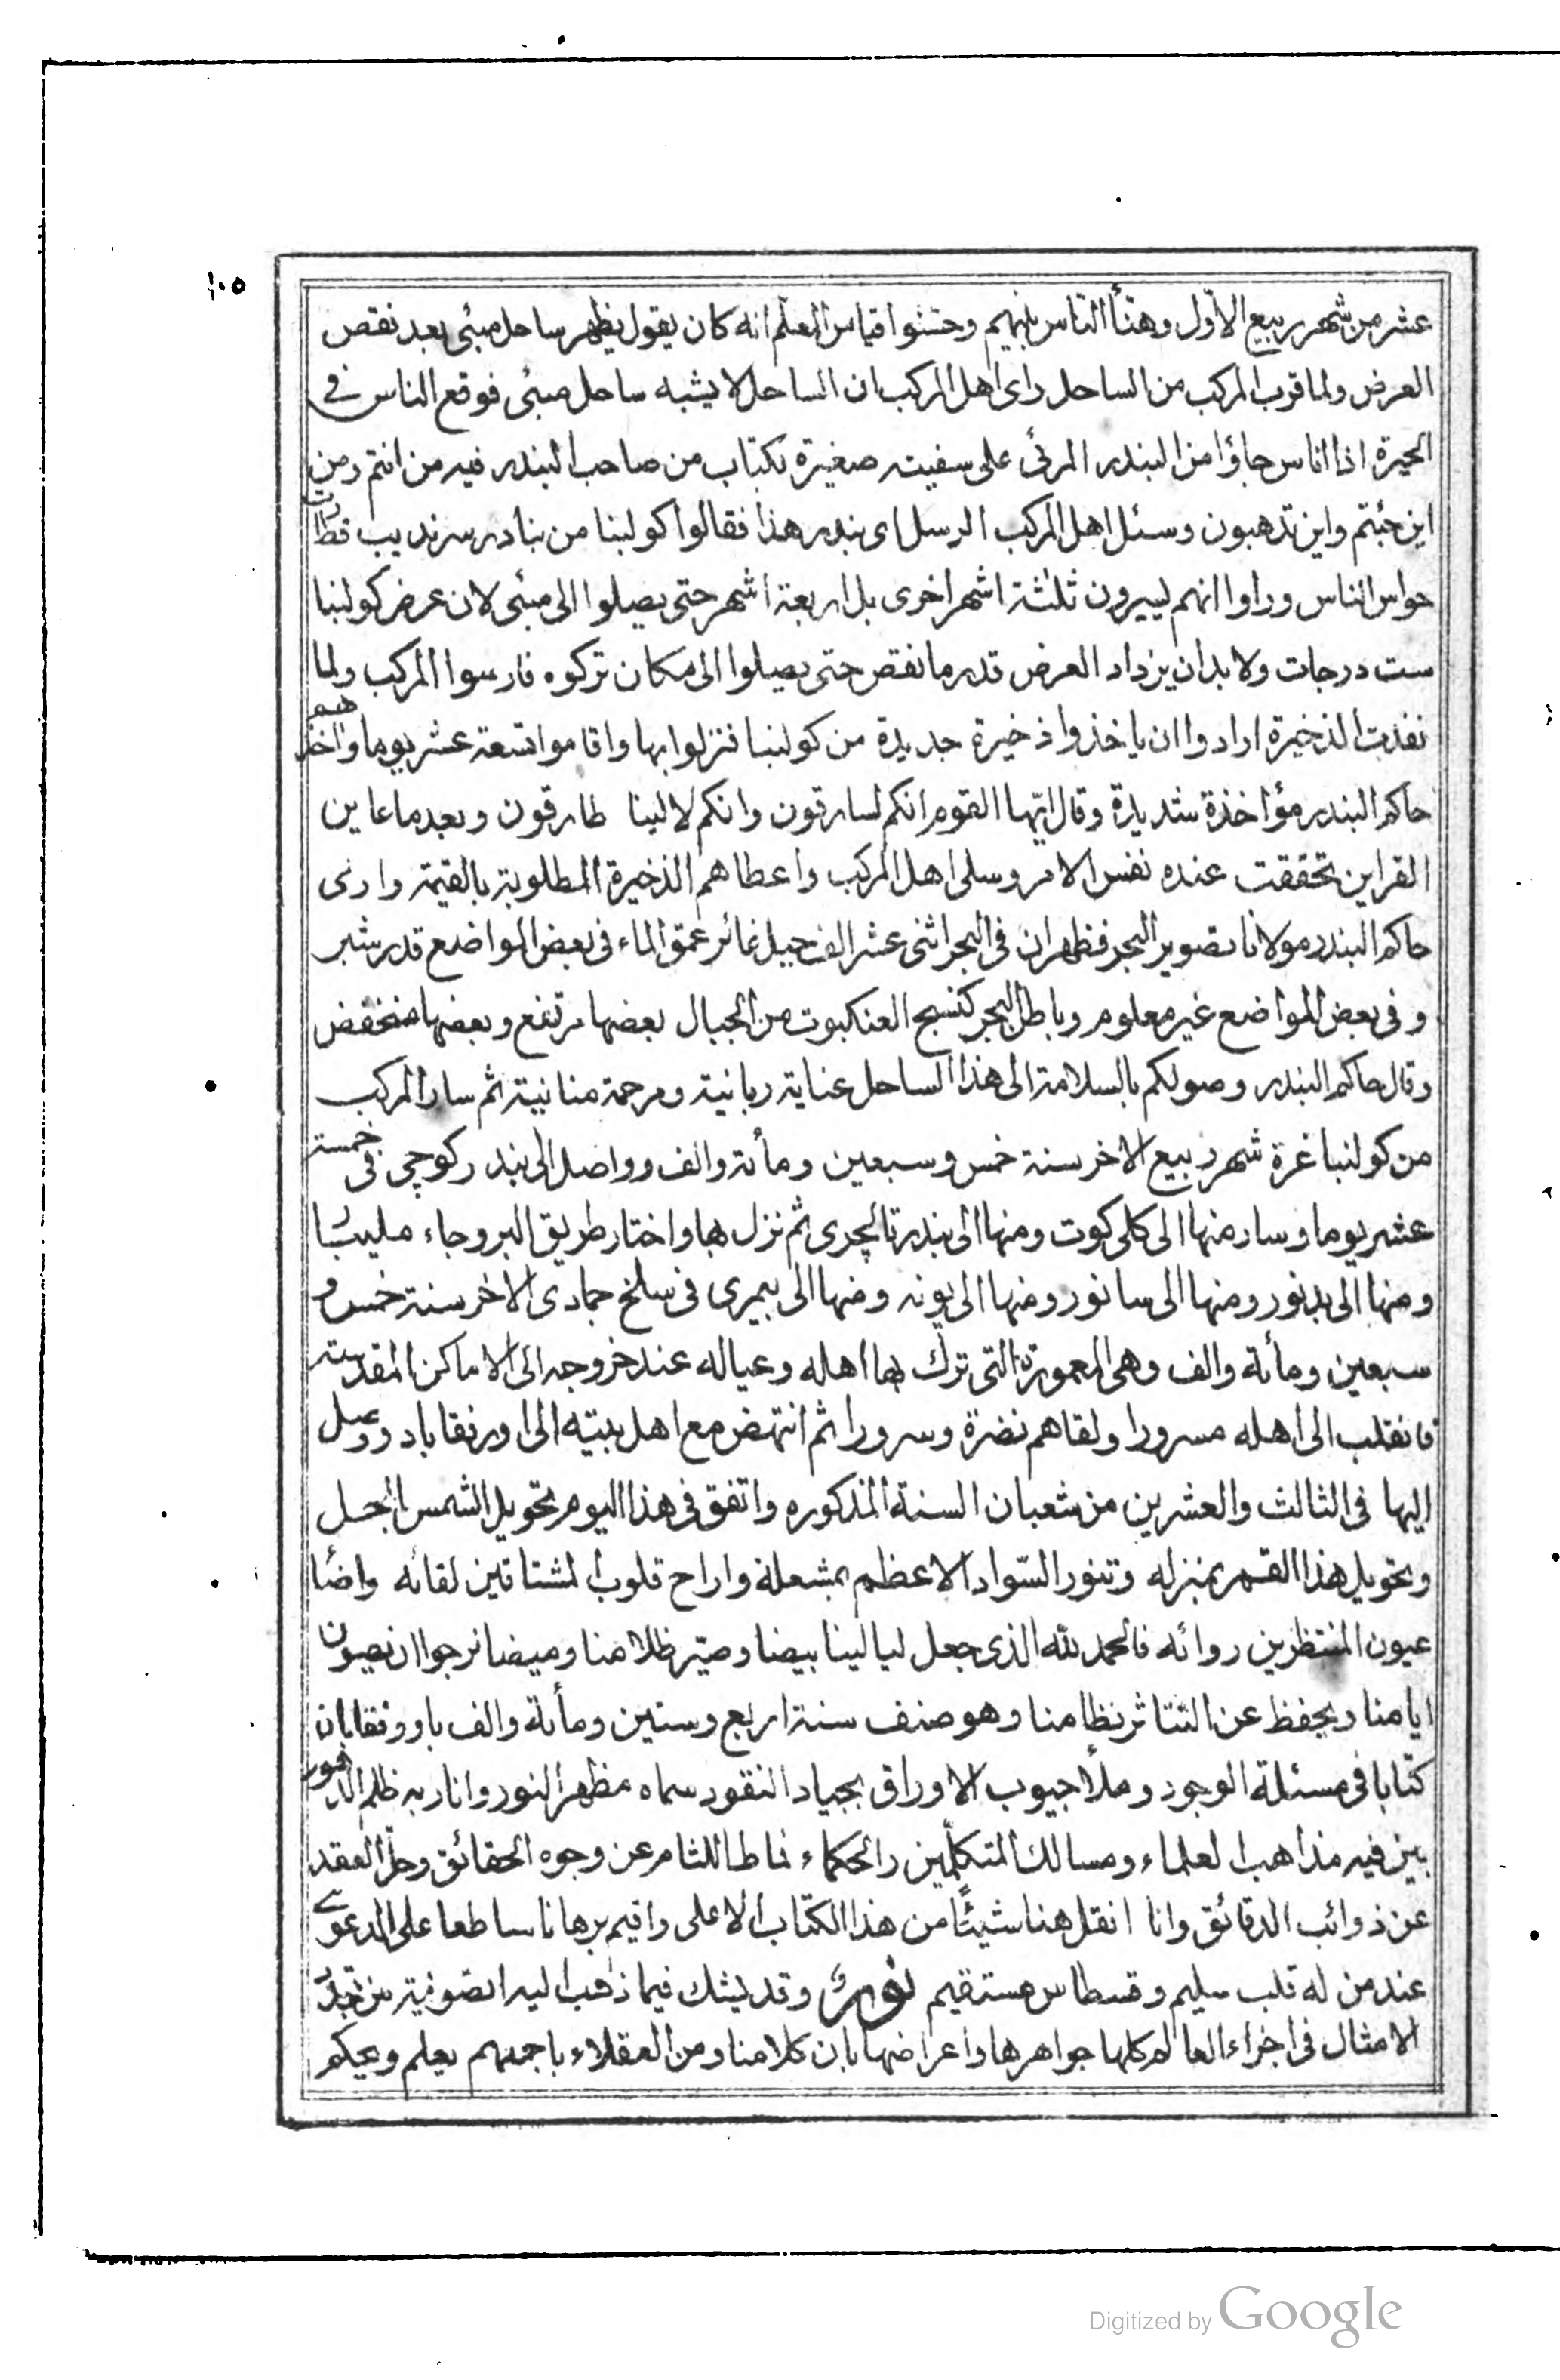 ١٠٥
عشر من شهر ربيع الاوّل وهنأ الناس بينهم وحشوا قياس المعلم انه كان يقول يظهر ساحل مبئى بعد نقص
العرض ولما قرب المركب من الساحل راى اهل المركب ان الساحل لا يشبه ساحل مبئى فوقع الناس في
الحيرة اذا اناس جاؤا من البندر المرئى على سفينه صغيرة بكتاب من صاحب البندر فيه من انتم ومن
اين جئتم واين تذهبون وسئل اهل المركب الرسل اى بندر هذا فقالوا كولنبا من بنادر سرنديب فطارت
حواس الناس وراوا انهم ليسيرون ثلثة اشهر اخرى بل اربعة اشهر حتى يصلوا الى مبئى لان عرض كولنبا
ست درجات ولا بد ان يزداد العرض قدر ما نقص حتى يصلوا الى مكان تركوه فارسوا المركب ولما
نفدت الذخيرة ارادوا ان ياخذوا ذخيرة جديدة من كولنبا فنزلوا بها واقاموا تسعة عشر يوما واخذهم
حاكم البندر مؤاخذة شديدة وقال ايّها القوم انكم لسارقون وانكم لا لينا طارقون وبعد ما عاين
القراين تحققت عنده نفس الامر وسلى اهل المركب واعطاهم الذخيرة المطلوبة بالقيمة وارى
حاكم البندر مولانا تصوير البحر فظهر ان في البحر اثنى عشر الف جبل غائر عمق الماء فى بعض المواضع قدر شبر
و فى بعض المواضع غير معلوم وباطن البحر كنسج العنكبوت من الجبال بعضها مرتفع وبعضها منخفض
وقال حاكم البندر وصولكم بالسلامة الى هذا الساحل عناية ربانية ومرحمة منانية ثم سار المركب
من كولنبا غرة شهر ربيع الاخر سنة خمس وسبعين ومأته والف وواصل الى بندر كوچى فى خمسة
عشر يوما وسار منها الى كلى كوت ومنها الى بندر تالچرى ثم نزل بها واختار طريق البر وجاء مليبارا
ومنها الى بدنور ومنها الى سانور ومنها الى پونه ومنها الى بيمرى فى سلخ جمادى الاخر سنة خمس و
سبعين ومأته والف وهى المعمورة التى ترك بها اهله وعياله عند خروجه الى الاماكن المقدسته
فانقلب الى اهله مسرورا ولقاهم نضرة وسرورا ثم انتهض مع اهل بيته الى اورنقاباد ووصل
اليها فى الثالث والعشرين من شعبان السنة المذكوره واتفق فى هذا اليوم تحويل الشمس الحمل
وتحويل هذا القمر بمنزله وتنور السّواد الاعظم بمشعلة واراح قلوب المشتاقين لقائه واضأ
عيون المنتظرين روائه فالحمد لله الذى جعل ليالينا بيضا وصيّر ظلامنا وميضا نرجوا ان نصيون
ايامنا ويحفظ عن التناثر نظامنا وهو صنف سنة اربع وستين ومأته والف باورنقاباد
كتابا فى مسئلة الوجود وملأ جيوب الاوراق بجياد النقود سماه مظهر النور وانار به ظلم الدهور
بين فيه مذاهب العلماء ومسالك المتكلمين والحكماء ناطا للثام عن وجوه الحقائق وحل العقد
عن ذوائب الدقائق وانا انقل هنا شيئًا من هذا الكتاب الاعلى واقيم برهانا ساطعا على الدعوى
عند من له قلب سليم وقسطاس مستقيم نور وقد يشك فيما ذهب اليه الصوفية من تجدد
الامثال فى اجزاء العالم كلها جواهرها واعراضها بان كلامنا ومن العقلاء باجمعهم يعلم ويحكم
Digitized by Google